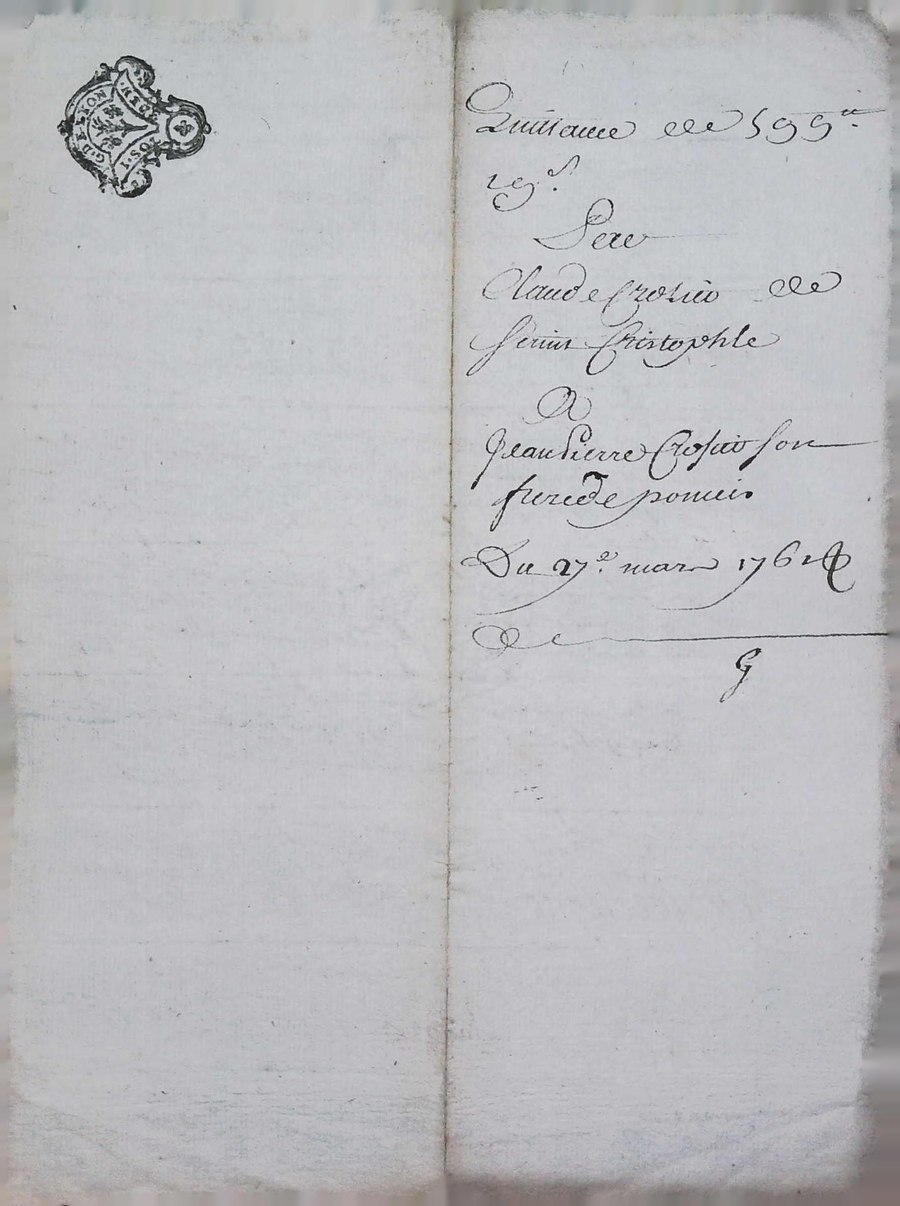 G. DE LYON
Quittance de 599ᵗᵗ
19ˢ
Pere
Claude Crosier de
Saint Cristophle
A
Jean Pierre Crosier son
frere de
Du 27ᵉ mars 176